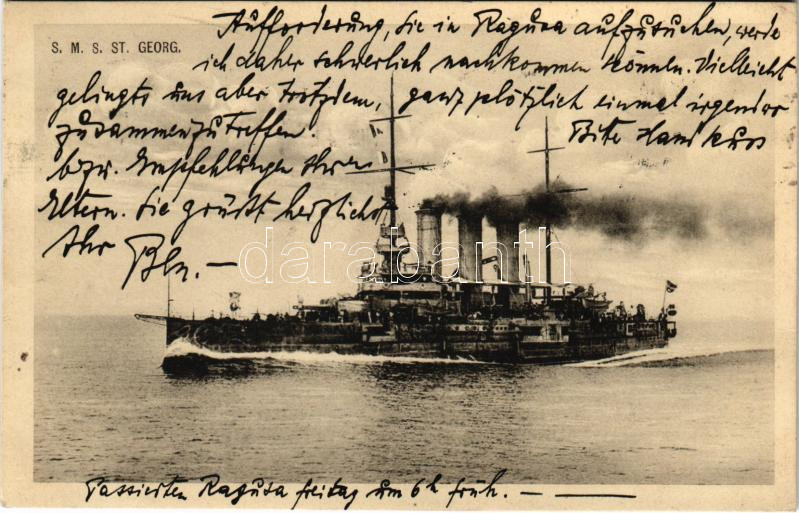 S. M. S. ST. GEORG.
Aufforderung, Sie in Ragusa aufzusuchen, werde
ich daher schwerlich nachkommen können. Vielleicht
gelingts uns aber trotzdem, ganz plötzlich einmal irgendwo
zusammenzutreffen. Bitte Handkuss
bzw. Empfehlungen Ihren
Eltern. Sie grüßt herzlichst
Ihr
darabanth
Passierten Ragusa freitag um 6h früh. —